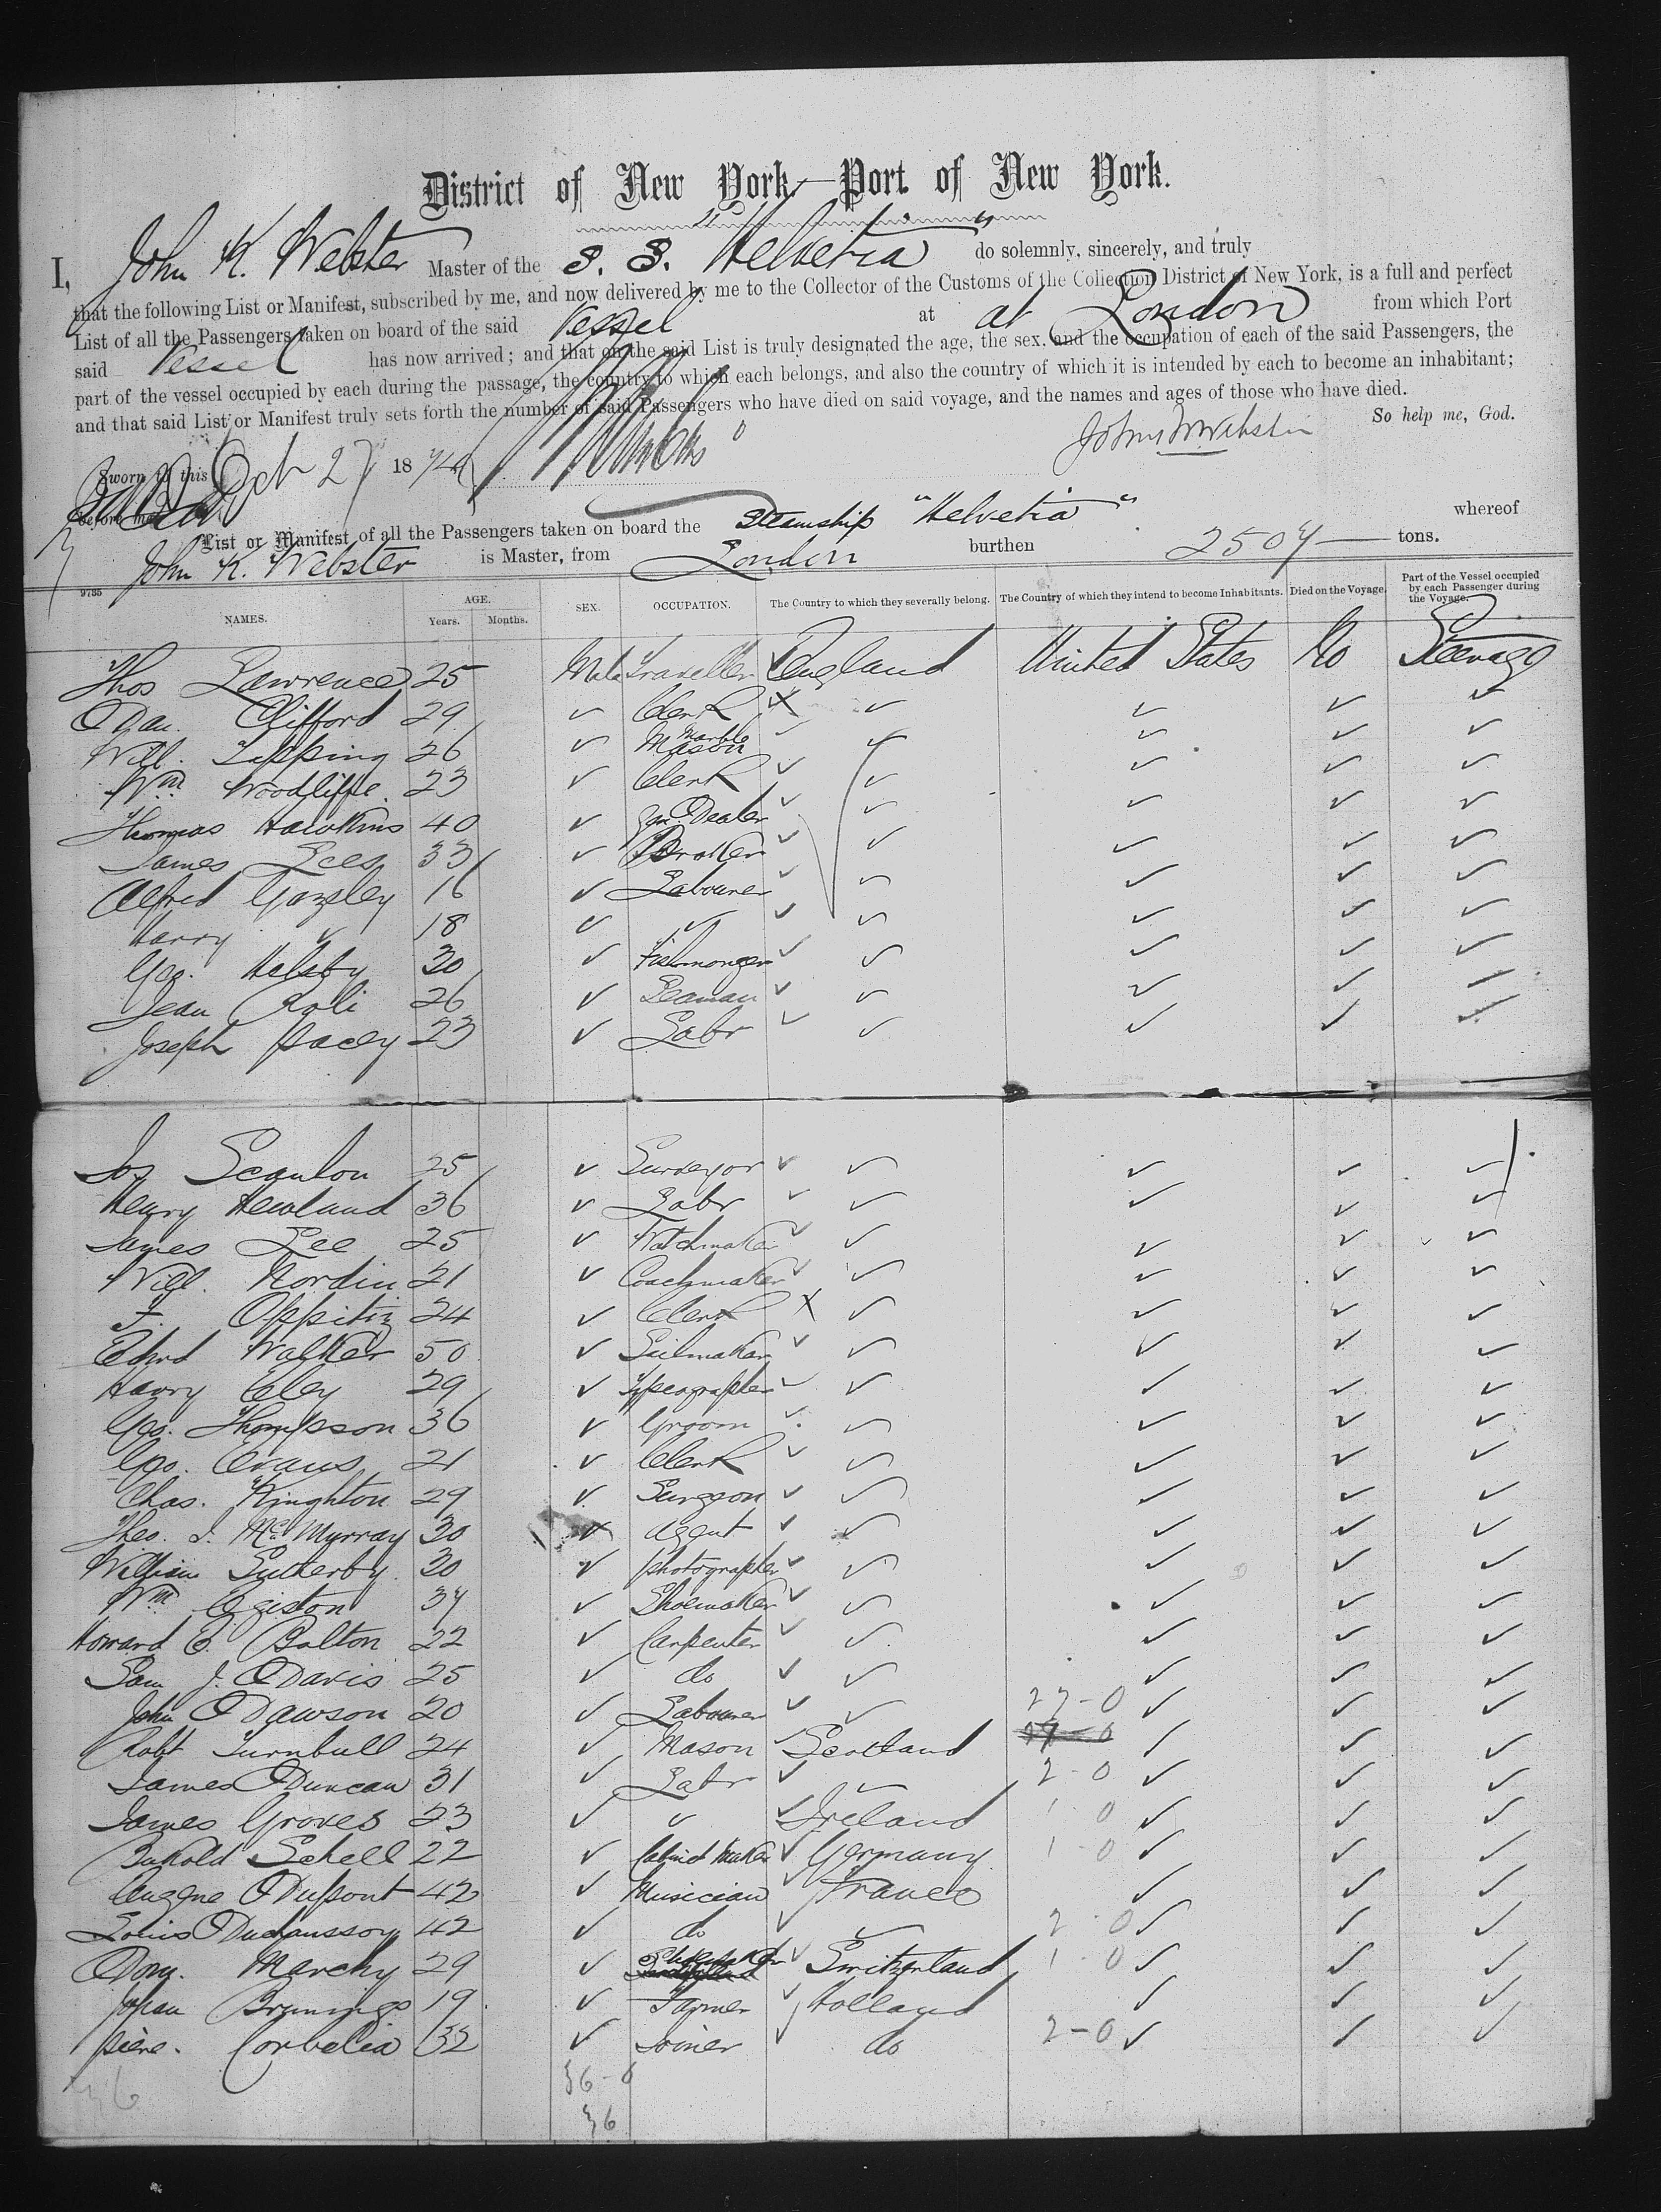 District of New York—Port of New York.
I, John K. Webster Master of the S. S. "Helvetia" do solemnly, sincerely, and truly
that the following List or Manifest, subscribed by me, and now delivered by me to the Collector of the Customs of the Collection District of New York, is a full and perfect
List of all the Passengers taken on board of the said Vessel at at London from which Port
said Vessel has now arrived; and that on the said List is truly designated the age, the sex, and the occupation of each of the said Passengers, the
part of the vessel occupied by each during the passage, the country to which each belongs, and also the country of which it is intended by each to become an inhabitant;
and that said List or Manifest truly sets forth the number of said Passengers who have died on said voyage, and the names and ages of those who have died.
So help me, God.
Sworn to this Oct 27 1874
before me
List or Manifest of all the Passengers taken on board the Steamship "Helvetia" whereof
John K. Webster is Master, from London burthen 2504 tons.
9785
NAMES. AGE. Years. Months. SEX. OCCUPATION. The Country to which they severally belong. The Country of which they intend to become Inhabitants. Died on the Voyage. Part of the Vessel occupied by each Passenger during the Voyage.
Thos Lawrence 25 Male Traveller England United States No Steerage
Dan. Clifford 29 ✓ Clerk X ✓ ✓ ✓ ✓
Will. Topping 26 ✓ Marble Mason ✓ ✓ ✓ ✓ ✓
Wm Woodliffe 23 ✓ Clerk ✓ ✓ ✓ ✓ ✓
Thomas Hawkins 40 ✓ Gen. Dealer ✓ ✓ ✓ ✓ ✓
James Lees 33 ✓ Broker ✓ ✓ ✓ ✓ ✓
Alfred Gazeley 16 ✓ Labourer ✓ ✓ ✓ ✓ ✓
Harry ✓ 18 ✓ ✓ ✓ ✓ ✓ ✓ ✓
Geo. Helsby 30 ✓ Fishmonger ✓ ✓ ✓ ✓ ✓
Jean Roli 26 ✓ Seaman ✓ ✓ ✓ ✓ ✓
Joseph Pacey 23 ✓ Labr ✓ ✓ ✓ ✓ ✓
Jos Scanlon 25 ✓ Surveyor ✓ ✓ ✓ ✓ ✓
Henry Newland 36 ✓ Labr ✓ ✓ ✓ ✓ ✓
James Lee 25 ✓ Watchmaker ✓ ✓ ✓ ✓ ✓
Will. Nordin 21 ✓ Coachmaker ✓ ✓ ✓ ✓ ✓
F. Oppitiz 24 ✓ Clerk X ✓ ✓ ✓ ✓
Edwd Walker 50 ✓ Sailmaker ✓ ✓ ✓ ✓ ✓
Harry Cley 29 ✓ Typeographer ✓ ✓ ✓ ✓ ✓
Geo. Thompson 36 ✓ Groom ✓ ✓ ✓ ✓ ✓
Geo. Evans 21 ✓ Clerk ✓ ✓ ✓ ✓ ✓
Chas. Kinghton 29 ✓ Surgeon ✓ ✓ ✓ ✓ ✓
Theo. J. McMurray 30 ✓ Agent ✓ ✓ ✓ ✓ ✓
William Sutherby 30 ✓ Photographer ✓ ✓ ✓ ✓ ✓
Wm ✓ Shoemaker ✓ ✓ ✓ ✓ ✓
Howard E. Bolton 22 ✓ Carpenter ✓ ✓ ✓ ✓ ✓
Sam J. Davis 25 ✓ do ✓ ✓ ✓ ✓ ✓
John Dawson 20 ✓ Labourer ✓ ✓ 27-0 ✓ ✓ ✓
Robt Turnbull 24 ✓ Mason ✓ Scotland ✓ ✓ ✓
James Duncan 31 ✓ Labr ✓ ✓ 2-0 ✓ ✓ ✓
James Groves 23 ✓ ✓ ✓ Ireland 1-0 ✓ ✓ ✓
Schell 22 ✓ Cabinet Maker ✓ Germany 1-0 ✓ ✓ ✓
Eugene Dupont 42 ✓ Musician ✓ France ✓ ✓ ✓
Louis 42 ✓ do ✓ ✓ 2-0 ✓ ✓ ✓
Dom. Marchy 29 ✓ ✓ Switzerland 1-0 ✓ ✓ ✓
Johan Brunings 19 ✓ Farmer ✓ Holland ✓ ✓ ✓
Piere. Corbelia 32 ✓ Joiner ✓ do 2-0 ✓ ✓ ✓
36 36-0
36